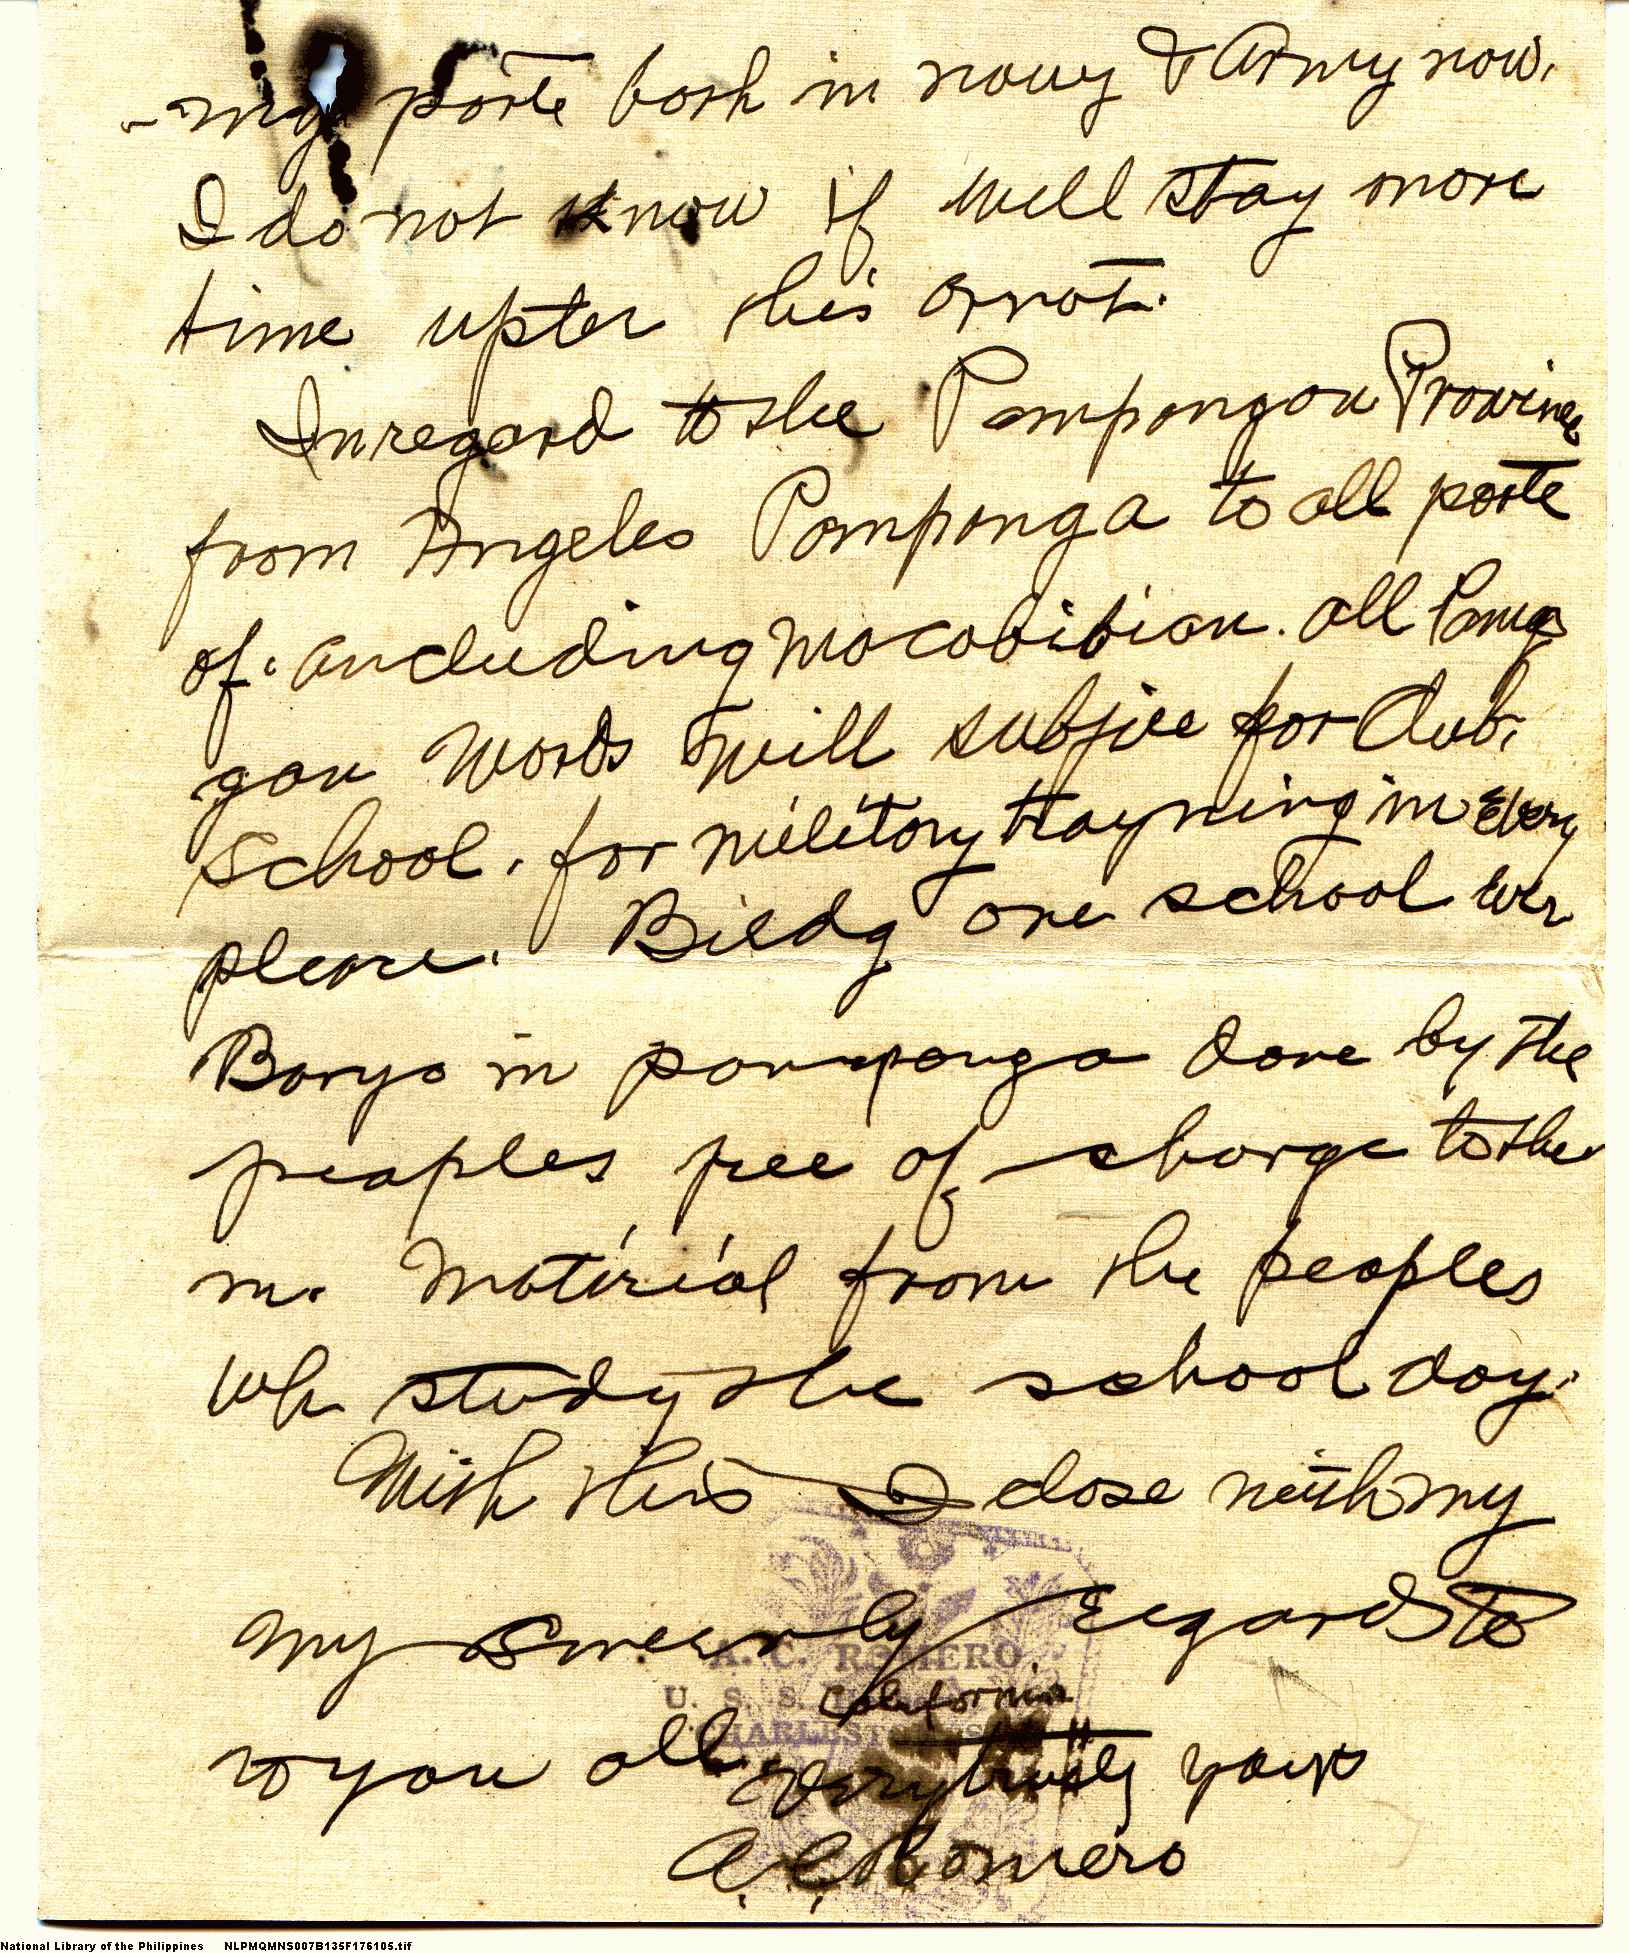 -ing parte both in navy & Army now.
I do not know if will stay more
time upter this or not.
In regard to the Pampangan Province
from Angeles Pampanga to all parte
of. ancluding Macabibian. all Pampan
gan words will subjice for Club.
School. for military trayning in Every
pleace. Bieldg one school ever
Baryo in pampanga done by the
peaples free of charge to the
m. Matirial from the peaples
wh study the school day.
With this I close with my
my Sincerly regards to
A. C. ROMERO
U. S. S. California
to you all Verry truely yours
A. C. Romero
National Library of the Philippines NLPMQMNS007B135F176105.tif